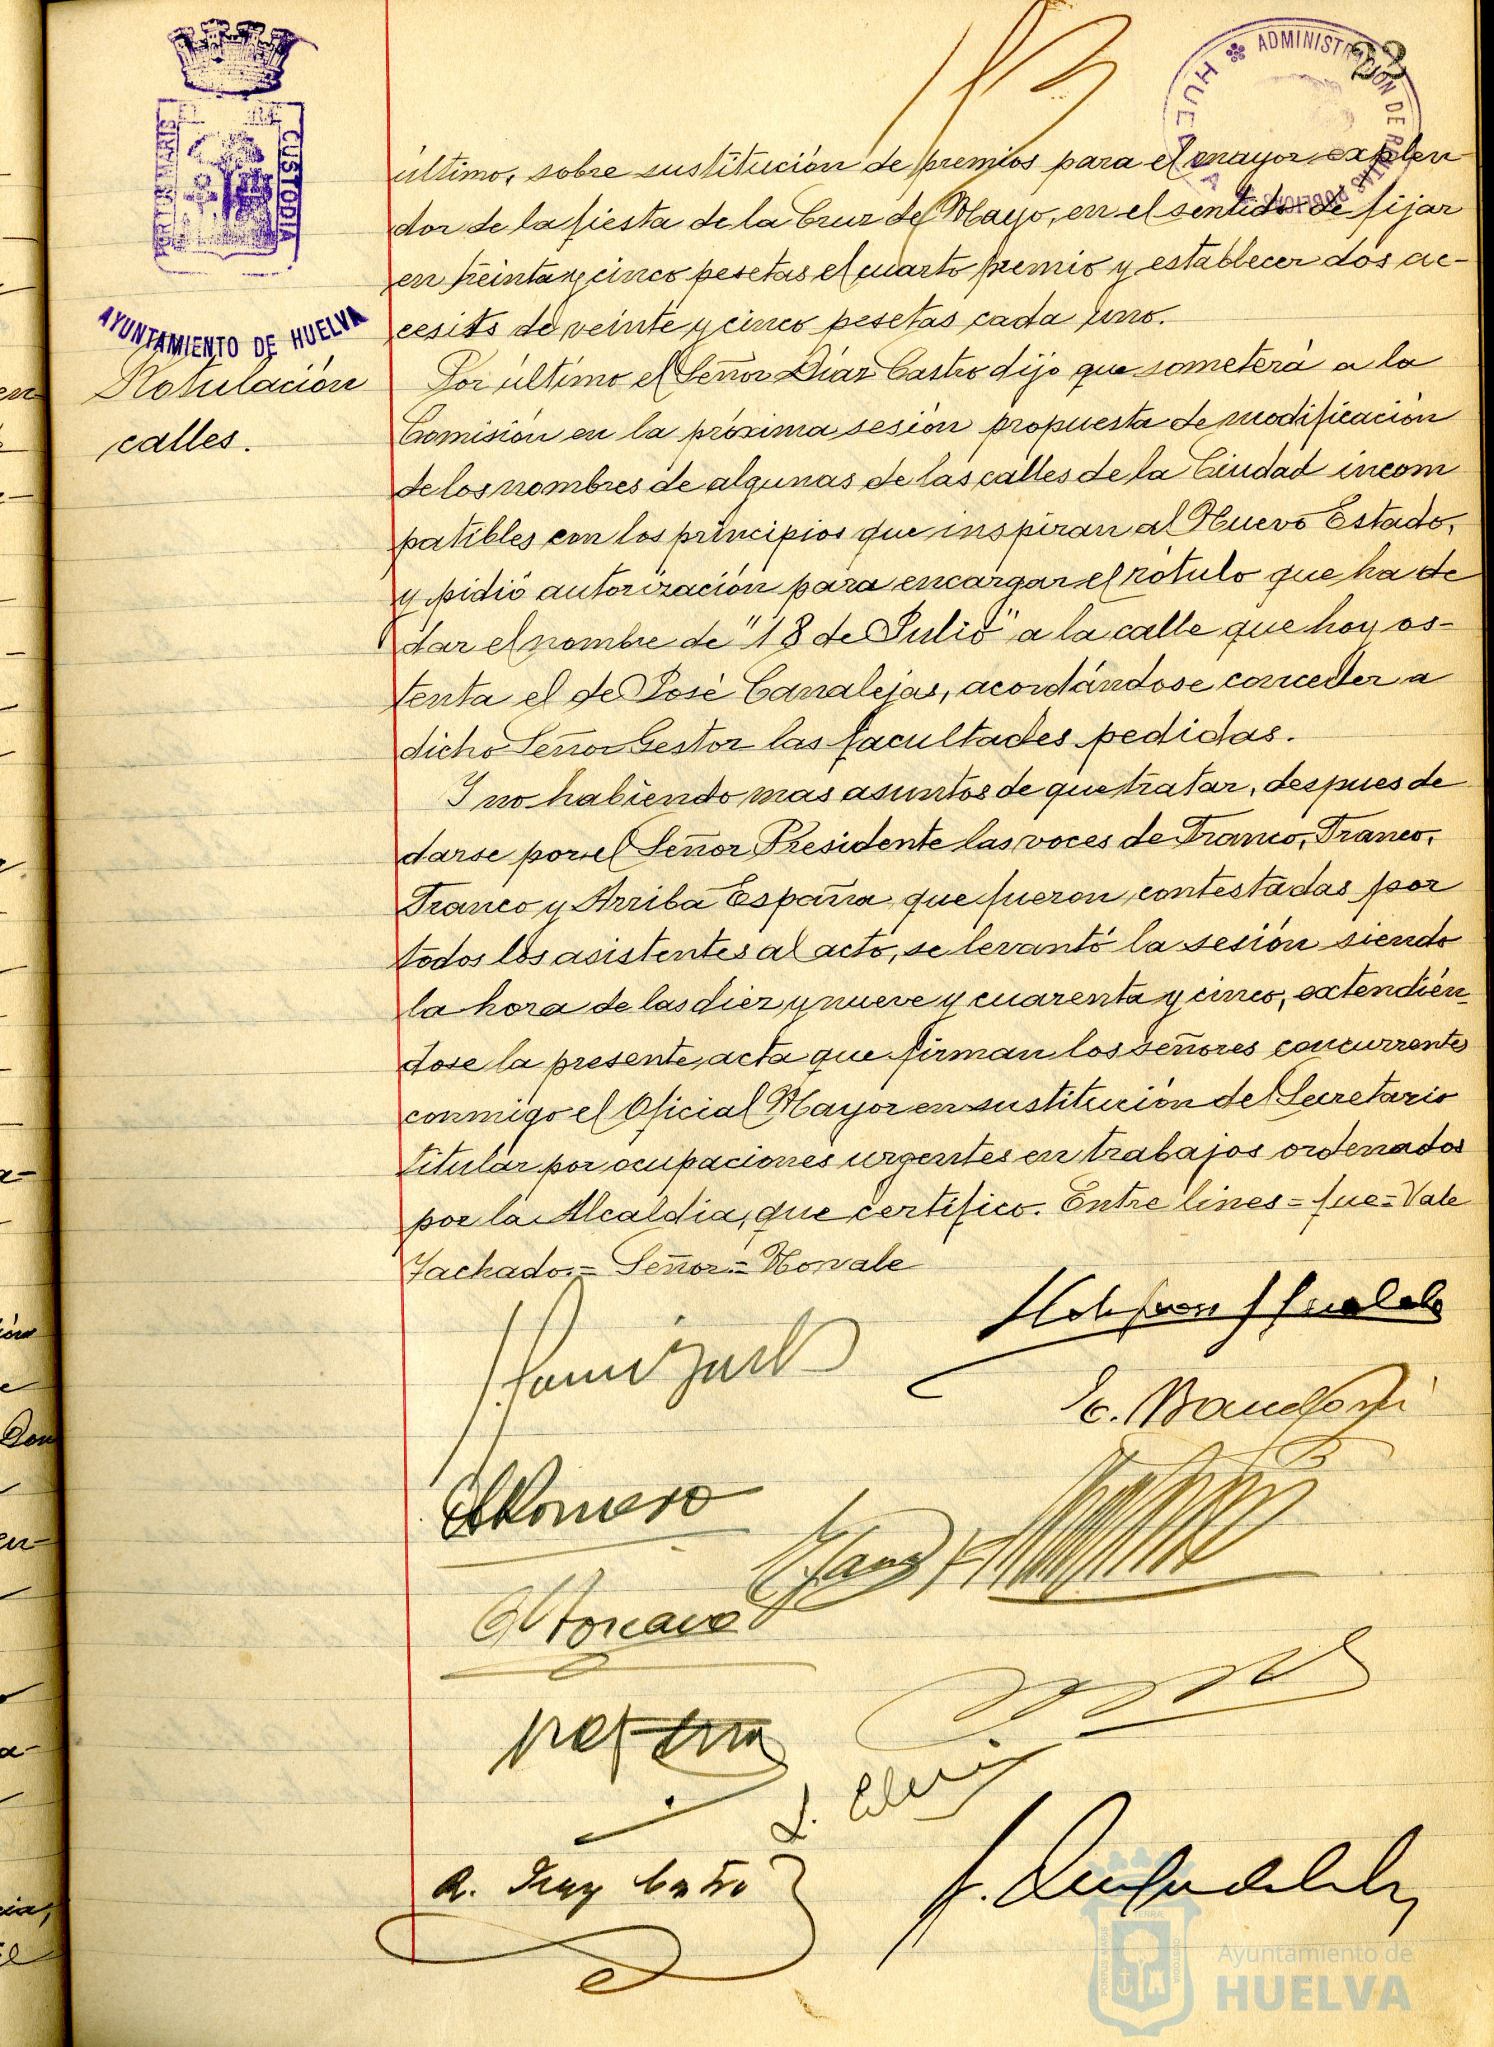 33
ADMINISTRACIÓN DE RENTAS PUBLICAS
HUELVA
PORTUS MARIS
CUSTODIA
AYUNTAMIENTO DE HUELVA
Rotulación
calles.
último, sobre sustitución de premios para el mayor explen-
dor de la fiesta de la Cruz de Mayo, en el sentido de fijar
en treinta y cinco pesetas el cuarto premio y establecer dos ac-
cesits de veinte y cinco pesetas cada uno.
Por último el Señor Díaz Castro dijo que someterá a la
Comisión en la próxima sesión propuesta de modificación
de los nombres de algunas de las calles de la Ciudad incom
patibles con los principios que inspiran al Nuevo Estado,
y pidió autorización para encargar el rótulo que ha de
dar el nombre de "18 de Julio" a la calle que hoy os-
tenta el de José Canalejas, acordándose conceder a
dicho Señor Gestor las facultades pedidas.
Y no habiendo mas asuntos de que tratar, despues de
darse por el Señor Presidente las voces de Franco, Franco,
Franco y Arriba España, que fueron contestadas por
todos los asistentes al acto, se levantó la sesión siendo
la hora de las diez y nueve y cuarenta y cinco, extendién-
dose la presente acta que firman los señores concurrentes
conmigo el Oficial Mayor en sustitución del Secretario
titular por ocupaciones urgentes en trabajos ordenados
por la Alcaldia, que certifico. Entre lines = fue = Vale
Tachado = Señor = No vale
Romero
R. Diaz Castro
Ayuntamiento de
HUELVA